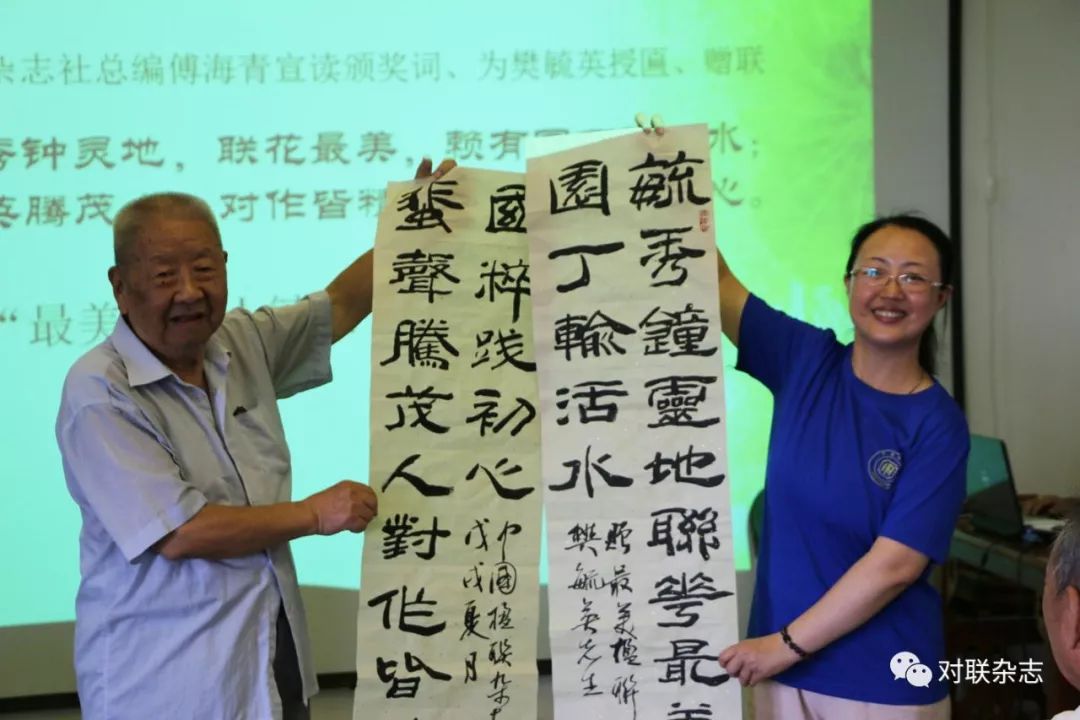 杂志社总编傅海青宣读颁奖词、为樊毓英授匾、赠联
秀钟灵地，联花最美，赖有 水；
腾茂 对作皆 心。
“最美
毓秀鐘靈地聯華最美
園丁輸活水
贈最美楹聯
樊毓英先生
蜚聲騰茂人對作皆
國粹践初心
中國楹联杂
戊戌夏月
对联杂志